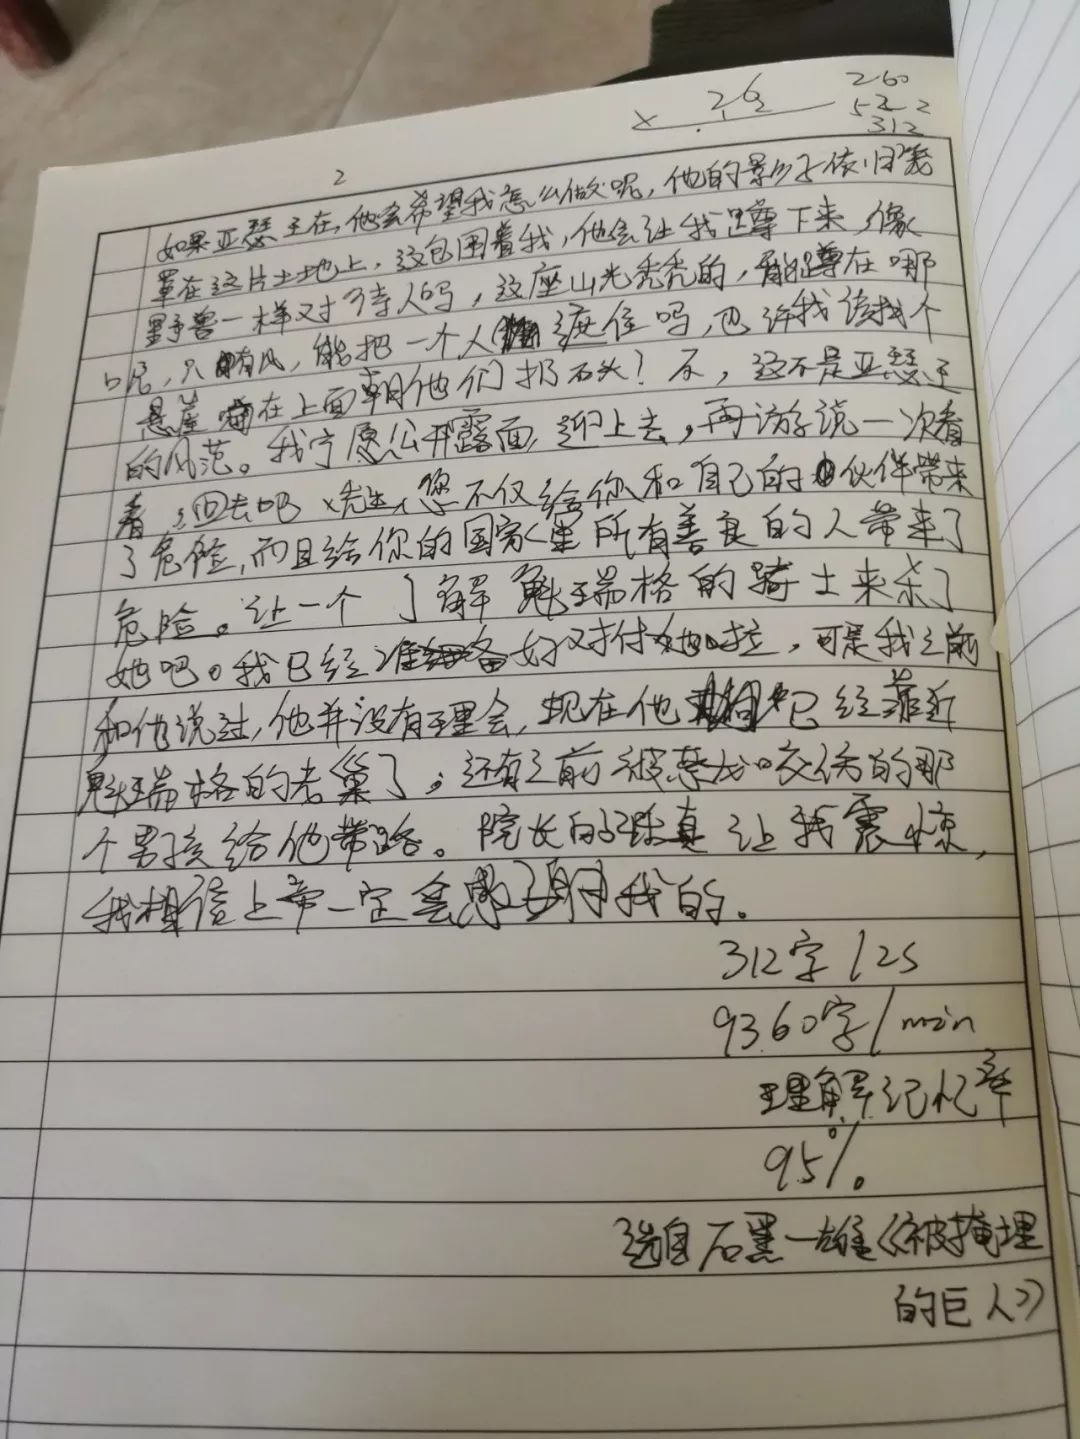 262
×
260
52 2
312
2
如果亚瑟王在,他会希望我怎么做呢,他的影子依旧笼
罩在这片土地上,这包围着我,他会让我蹲下来 像
野兽一样对待人吗,这座山光秃秃的,能蹲在哪
呢,只有风,能把一个人遮住吗,也许我该找个
悬崖 在上面朝他们扔石头?不,这不是亚瑟王
的风范。我宁愿公开露面,迎上去,再游说一次看
看,回去吧,先生,您不仅给你和自己的伙伴带来
了危险,而且给你的国家里所有善良的人带来了
危险。让一个了解魁瑞格的骑士来杀了
她吧。我已经准备好对付她啦,可是我之前
和他说过,他并没有理会,现在他已经靠近
魁瑞格的老巢了,还有之前被恶龙咬伤的那
个男孩给他带路。院长的 真让我震惊,
我相信上帝一定会 我的。
312字/2s
9360字/min
理解记忆率
95%。
选自石黑一雄《被掩埋
的巨人》